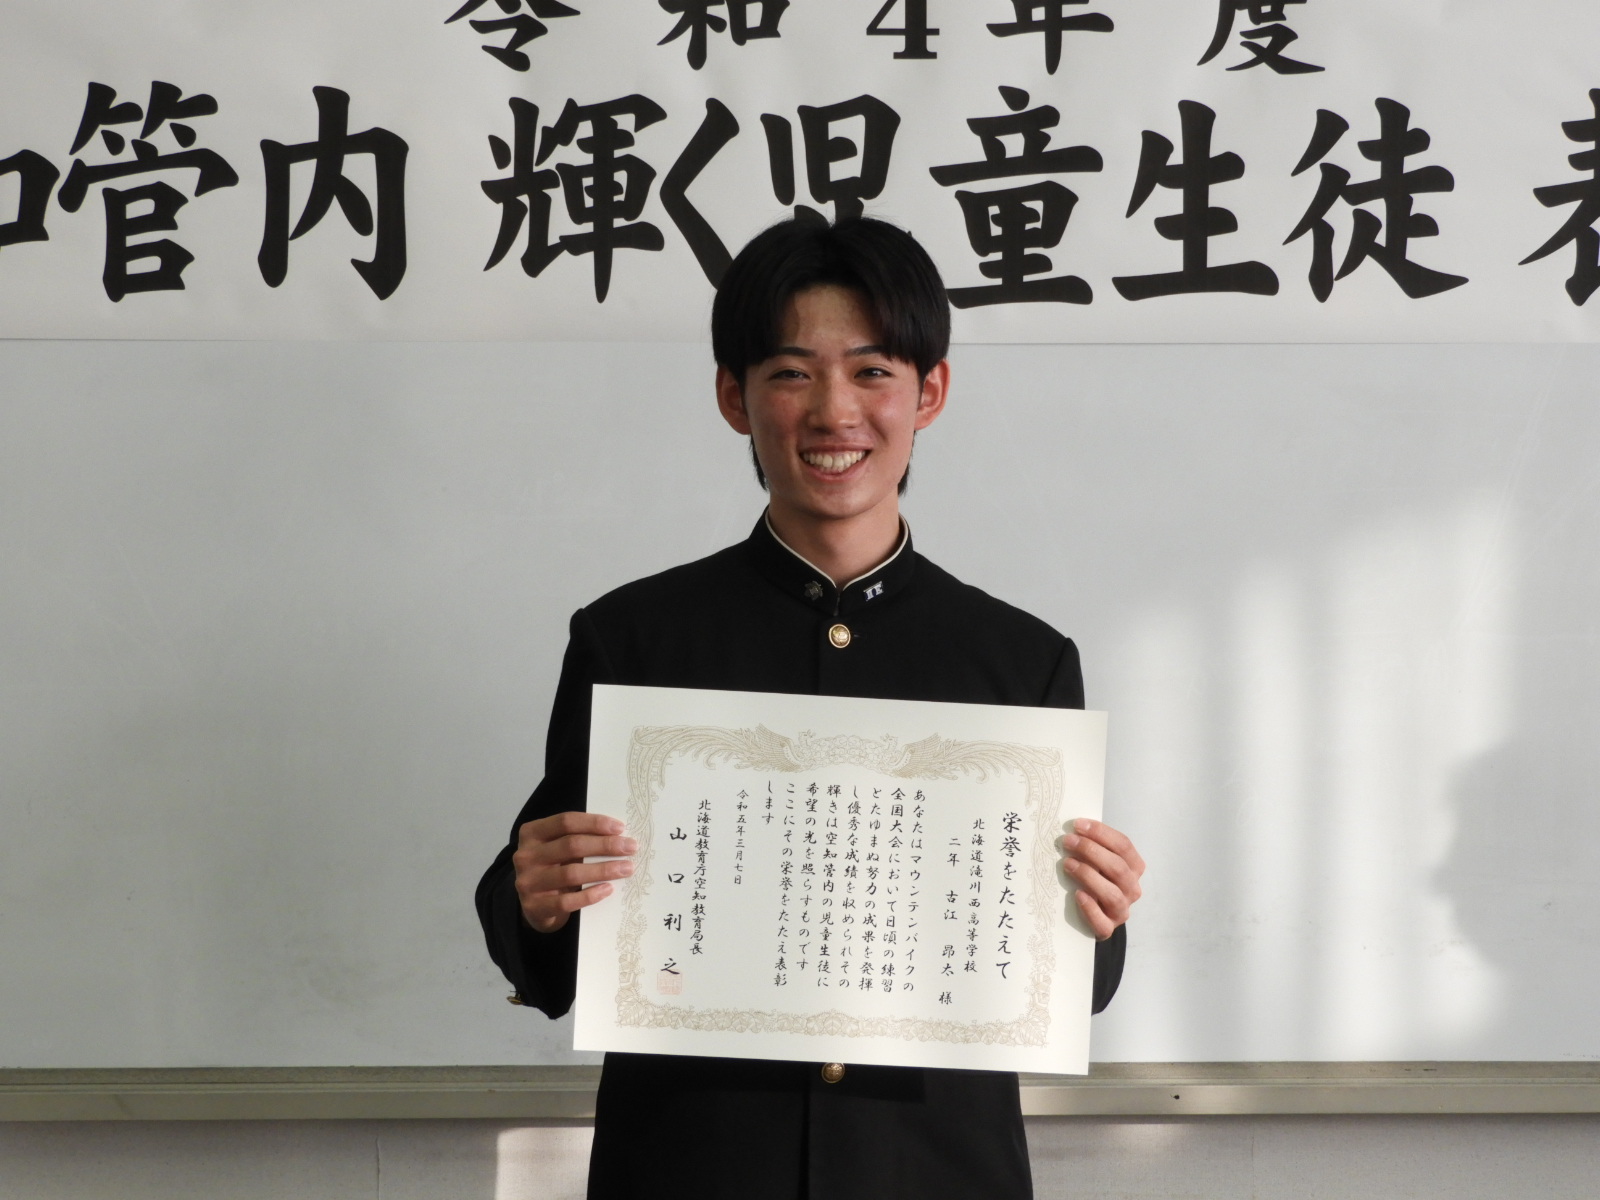 令和4年度
管内 輝く児童生徒 表
栄誉をたたえて
北海道滝川西高等学校
二年 古江 昴太 様
あなたはマウンテンバイクの
全国大会において日頃の練習
とたゆまぬ努力の成果を発揮
し優秀な成績を収められその
輝きは空知管内の児童生徒に
希望の光を照らすものです
ここにその栄誉をたたえ表彰
します
令和五年三月七日
北海道教育庁空知教育局長
山口利之